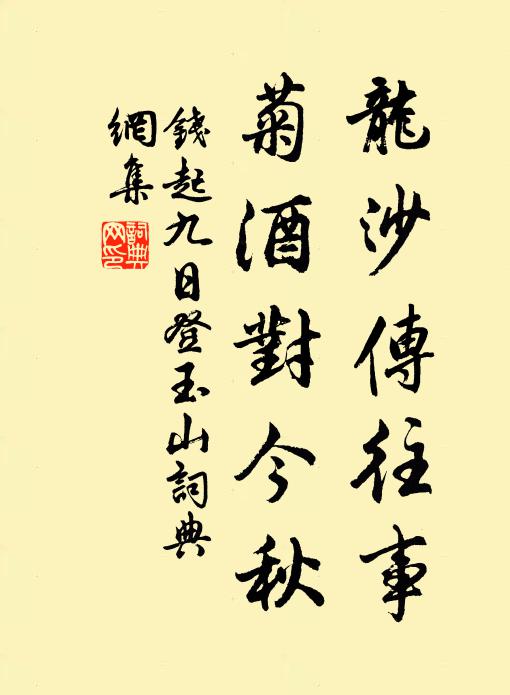 龍沙傳往事
菊酒對今秋
錢起九日登玉山詞典
網集
詞典
网印